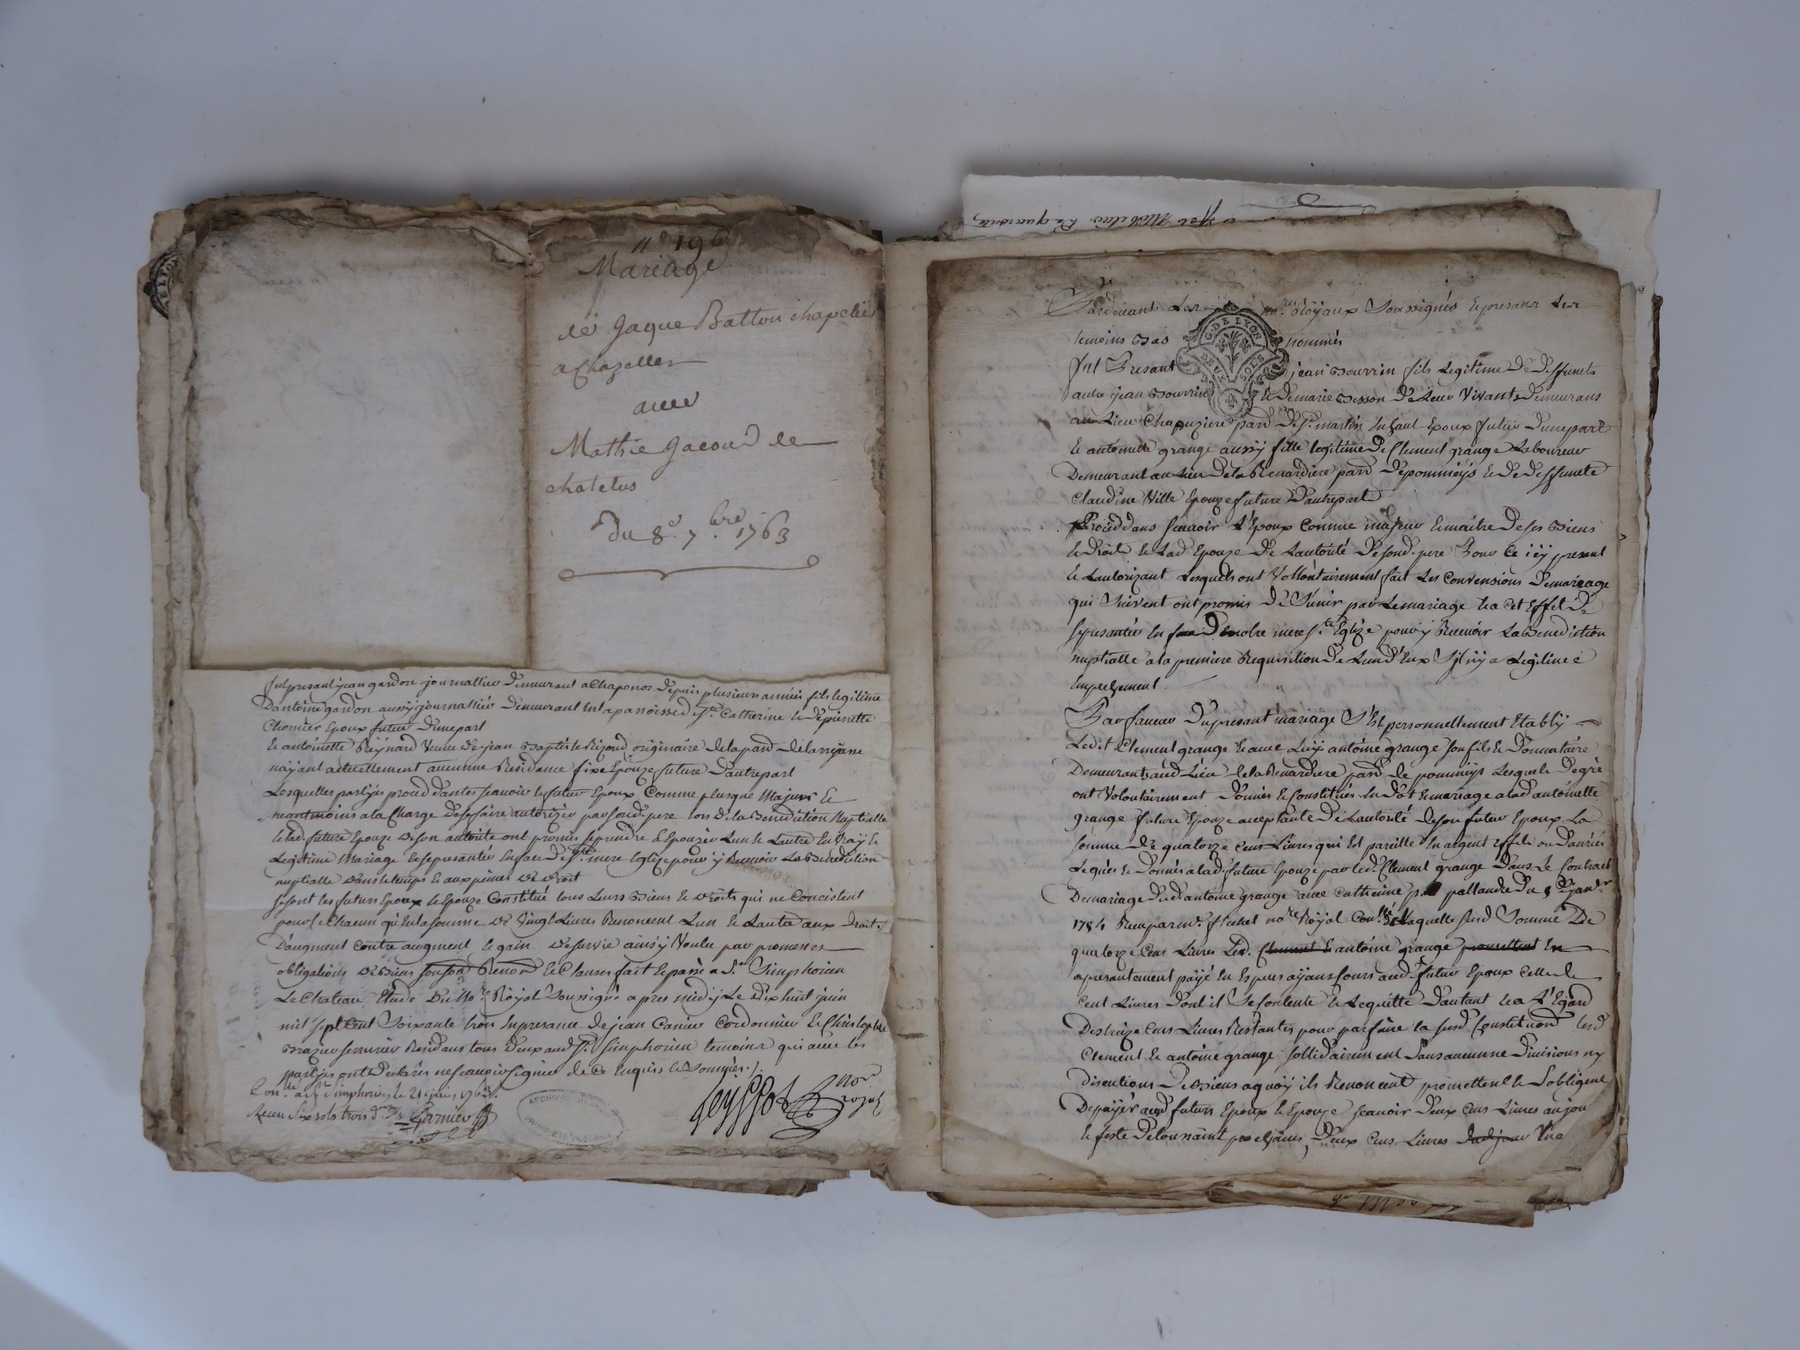 n° 196
Mariage
de Jaque Batton chapelier
a Chazelles
avec
Mathie Gacon de
chatelus
Du 8e 7bre 1763
fut present jean gardon journallier demeurant a Chaponos depuis plusieurs années fils legitime
D'antoine gardon aussy journallier demeurant en la paroisse de Ste Catherine et de pierrette
Chomier Epoux futur D'une part
Et antoinette Reynard Veuve de jean Baptiste Rigaud originaire de la par.
nayant actuellement aucunne Residance fixe Epouze future D'autre part
Lesquelles partyes proceddantes scavoir le futur Epoux Comme plus que Majeur Et
neantmoins a la Charge de se faire autorizer par sond. pere lors de la Benediction Nuptialle
et lad. future Epouze de son autorité ont promis se prendre et Epouzer L'un et L'autre En vray et
Legitime Mariage et se presenter En face de ste mere Eglize pour y Recevoir La Benediction
nuptialle dans le temps et aux peines de Droit
se sont les futurs Epoux et Epouze Constitué tous leurs Biens et Droits qui ne Concistent
pour Chacun qu'En la somme de Vingt Livres Renoncent L'un et L'autre aux Droits
D'augment Contre augment et gain de survie ainsy Voulu par promesses
obligations de Biens Renon et Clauses fait et passé a St Simphorien
Le Chateau Etude du Nore Royal soussigné apres midy Le Dix huit juin
mil sept Cent soixante trois En presance de jean Canier Cordonnier et Christophle
Brazier serrurier Residans tous deux aud. St Simphorien temoins qui avec les
partyes ont declarés ne scavoir signer de ce Enquis et sommés
Con.lé a St Simphorien le 21 juin 1763
Receu six sols trois d. Garnier
nore royal
ARCHIVES
Pardevant Les nores Royaux Soussignés Et presans Les
temoins Bas nommés
G. DE LYON
DEUX SOLS
fut Present jean Bourrin fils Legitime De Deffunts
autre jean Bourrin et de marie Besson De Leur Vivants Demeurans
au Lieu Chapuziere par. De St martin En haut Epoux futur D'une part
Et antoinette grange aussy fille legitime De Clement grange Laboureur
Demeurant au lieu De la Renardiere par. De pommeys et De Deffuncte
Claudine Ville Epouze future D'autre part
Proceddans scavoir L'Epoux Comme majeur Et maitre de ses Biens
Et Droits et La d. Epouze De L'autorité De sond. pere Pour Ce icy present
Et L'autorizant Lesquels ont Vollontairement fait Les Convensions De mariage
qui suivent ont promis De S'unir par Le mariage Et a Cet Effet De
se presanter En face De notre mere ste Eglize pour y Recevoir La Benediction
nuptialle a la premiere Requisition De L'un D'Eux S'il n'y a Legitime
Empechement
En faveur Du presant mariage S'Est personnellement Etably
Ledit Clement grange Et avec Luy antoine grange son fils Et Donnataire
Demeurants aud. Lieu De La Renardiere par. De pommeys Lesquels De gré
ont Volontairement Donnés Et Constitués En Dot Et mariage a lad. antoinette
grange future Epouze acceptante De L'autorité De son futur Epoux La
somme De quatorze Cens Livres qui Est pareille En argent Effets ou Danrées
Legués Et Donnés a lad. future Epouze par led. Clement grange Dans Le Contrat
De mariage Dud. antoine grange avec Catherine pallandre Du 8 Janer
1754 Receu par me. nore Royal Con.lé Laquelle susd. Somme De
quatorze Cens Livres Led. Clement Et antoine grange promettent En
a presantement payé En Especes ayans Cours aud. futur Epoux Celle De
Cent Livres Dont il Se Contente Et Le quitte D'autant Et a L'Egard
Des treize Cens Livres Restantes pour parfaire la susd. Constitution Lesd.
Clement Et antoine grange sollidairement sans aucunne Divisions ny
Discutions De Biens a quoy ils Renoncent promettent Et S'obligent
De payer aux futurs Epoux Et Epouze scavoir Deux Cens Livres au jour
Et feste De toussaint prochaine, Deux Cens Livres dud. jour